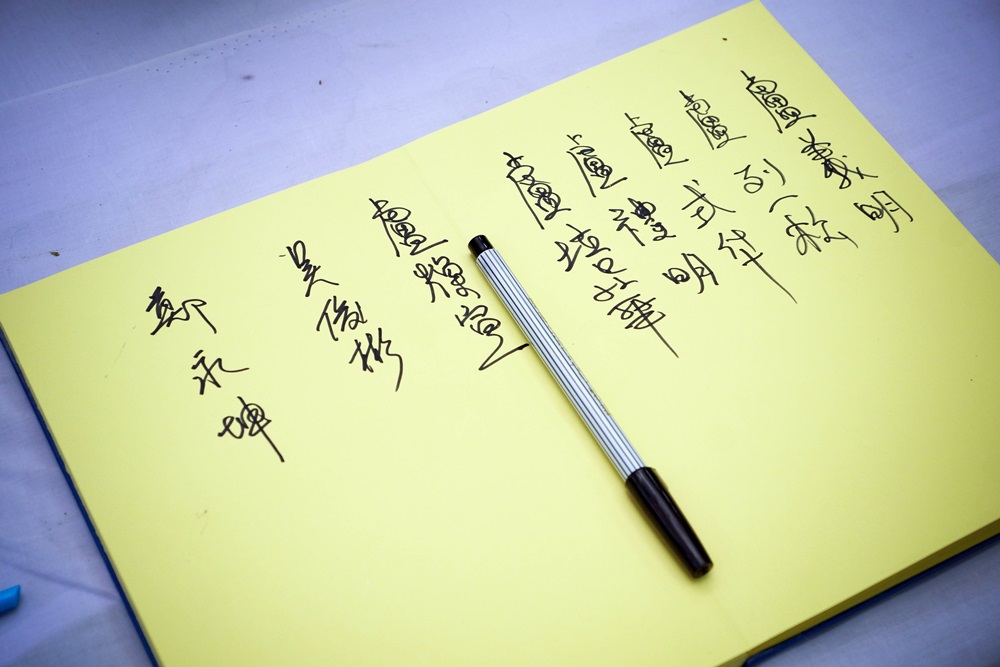 盧義明
盧列松
盧式华
盧禮明
盧培華
盧耀宣
吴俊彬
鄭永坤